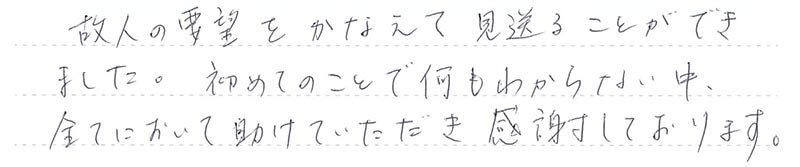 故人の要望をかなえて見送ることができ
ました。初めてのことで何もわからない中、
全てにおいて助けていただき感謝しております。